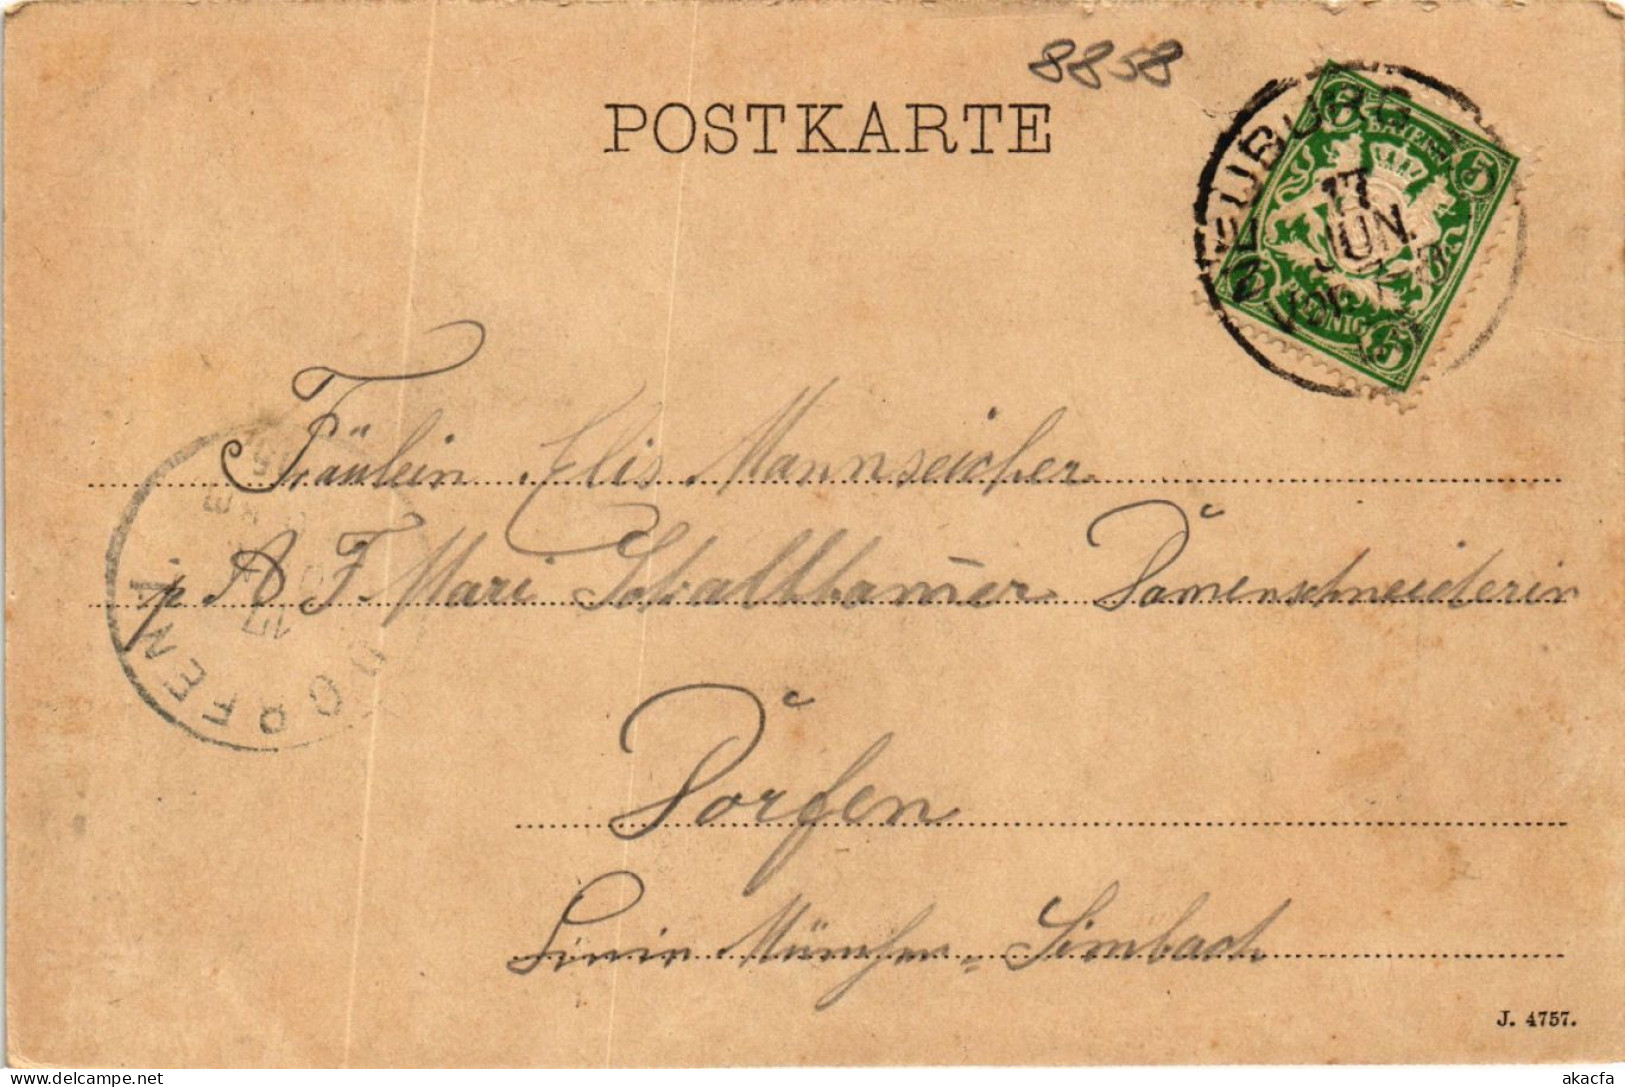 8858
POSTKARTE
NEUBURG
BAYERN
5
17
JUN.
5
Fräulein Elis Mannseicher
p. A. F. Mari Schallhamer Damenschneiderin
DORFEN
17
Dorfen
Linie München = Simbach
J. 4757.
akacfa